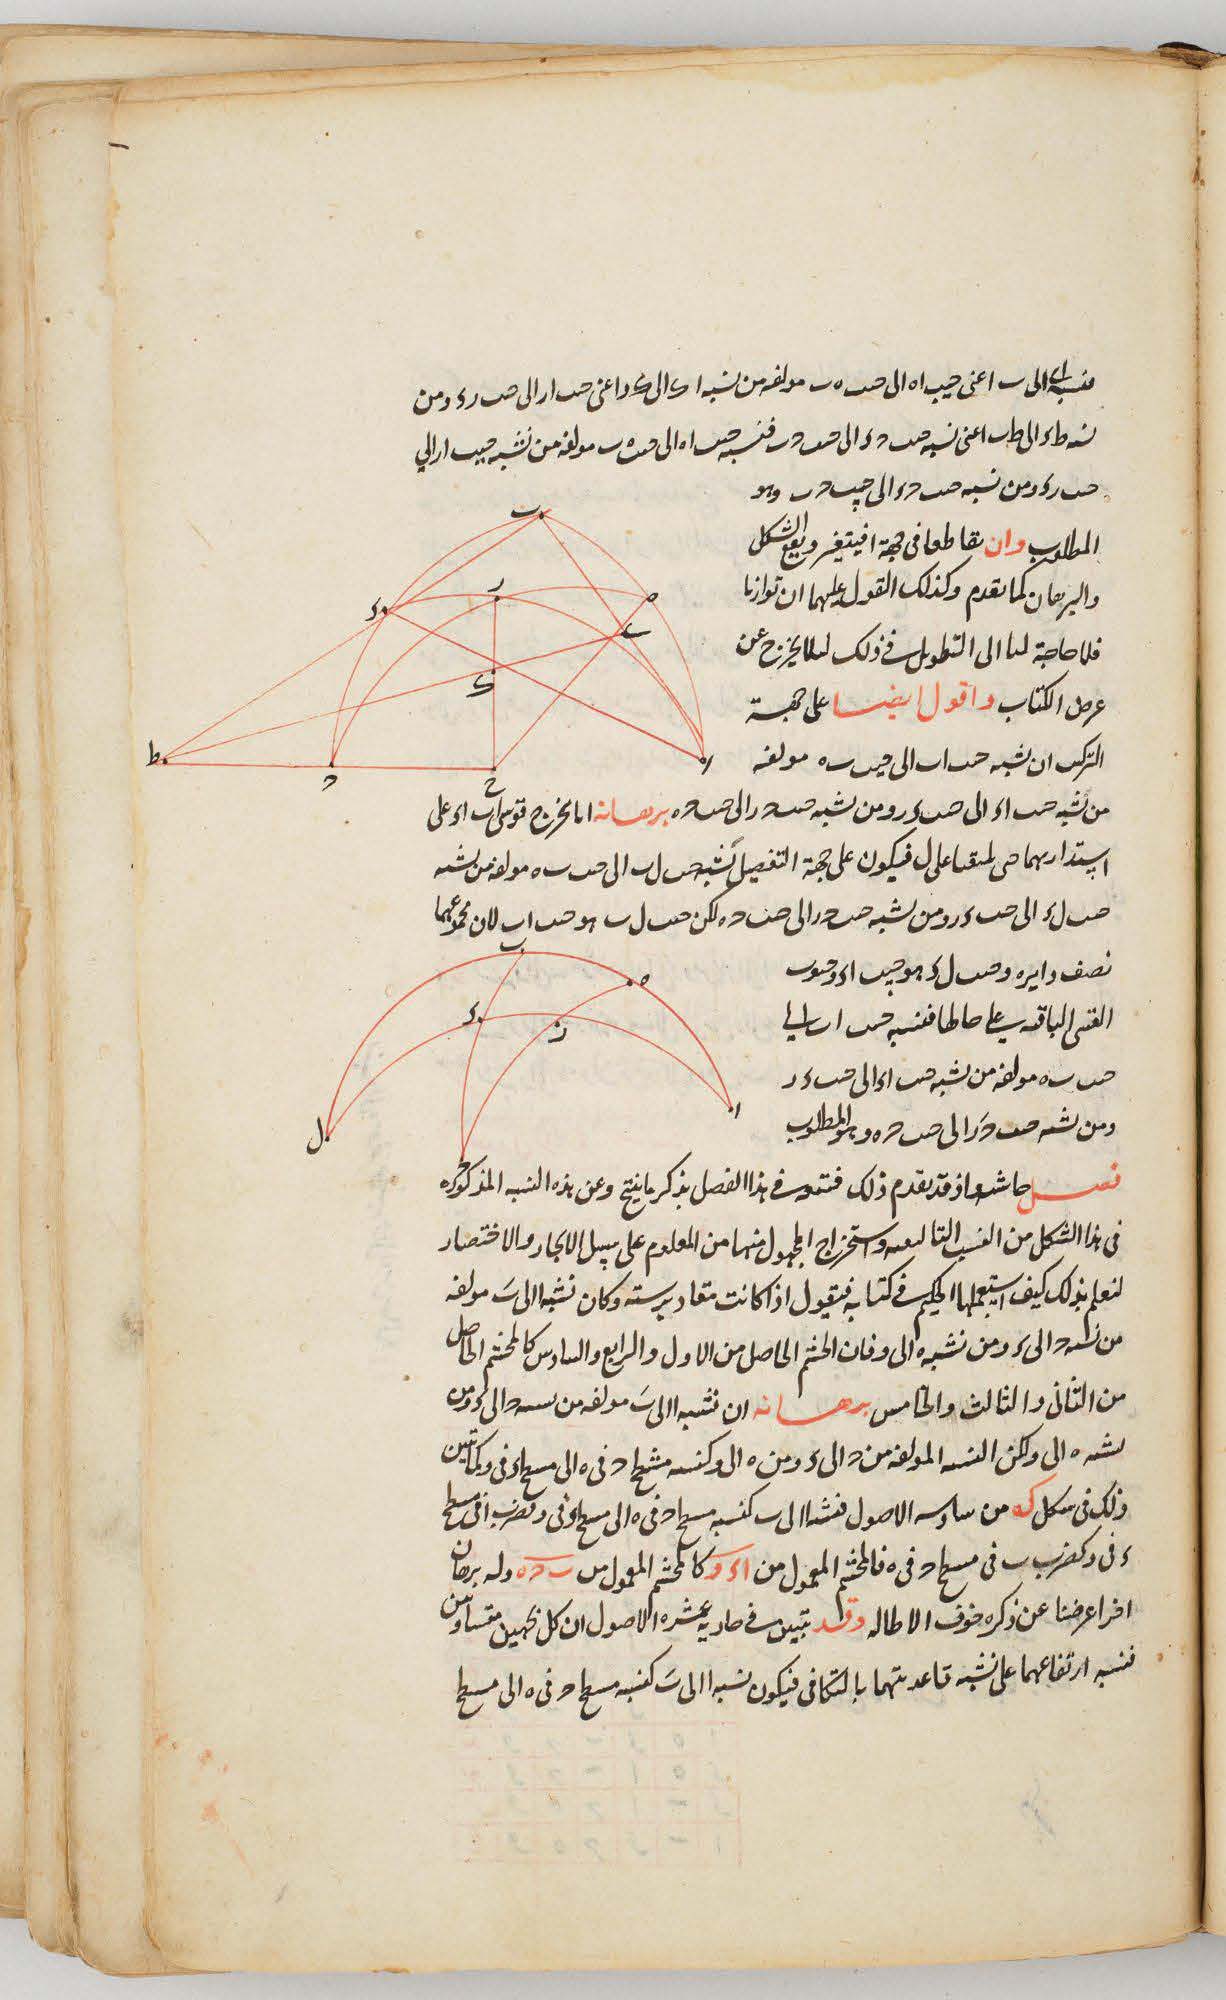 فنسبة اى الى ب اعنى جيب اه الى حب ه ب مولفه من نسبة اك الى ك د اعنى حب ار الى حب رء ومن
نسبه طء الى طب اعنى نسبه حب حء الى حب حب فنسبه حب اه الى حب ه ب مولفه من نسبه جيب ار الى
حب رء ومن نسبه حب حء الى جيب حب وهو
المطلوب وان تقاطعا فى جهة ا فيتغير ويقع الشكل
والبرهان كما تقدم وكذلك القول عليهما ان توازيا
فلا حاجة لنا الى التطويل فى ذلك لئلا يخرج عن
غرض الكتاب واقول ايضا على جهة
التركيب ان نسبه حب اب الى جيب ب ه مولفه
من نسبه حب اء الى حب ءر ومن نسبه حب حر الى حب حه برهانه انا نخرج قوسى اب اء على
استدارتهما حتى يلتقيا على ل فيكون على جهة التفصيل نسبه حب ل ب الى حب ب ه مولفه من نسبه
حب لء الى حب ءر ومن نسبه حب حر الى حب حه لكن حب ل ب هو حب اب لان مجموعهما
نصف دايره وحب لء هو جيب اء وجيوب
القسى الباقيه على حالها فنسبه حب اب الى
حب ب ه مولفه من نسبه حب اء الى حب ءر
ومن نسبه حب حر الى حب حه وهو المطلوب
فصل واذ قد تقدم ذلك فى هذا الفصل بذكر ما ينتج وعن هذه النسبه المذكوره
فى هذا الشكل من النسب التاليفيه واستخراج المجهول منها من المعلوم على سبيل الايجاز والاختصار
لنعلم بذلك كيف استعملها الحكيم فى كتابه فنقول اذا كانت مقادير سته وكان نسبه ا الى ب مولفه
من نسبه ح الى ء ومن نسبه ه الى و فان المجسم الحاصل من الاول والرابع والسادس كالمجسم الحاصل
من الثانى والثالث والخامس برهانه ان نسبه ا الى ب مولفه من نسبه ح الى ء ومن
نسبه ه الى و لكن النسبه المولفه من ح الى ء ومن ه الى و كنسبه مسطح ح فى ه الى مسطح ء فى و كما تبين
ذلك فى شكل كه من سادسه الاصول فنسبه ا الى ب كنسبه مسطح ح فى ه الى مسطح ء فى و فضرب ا فى مسطح
ء فى و كضرب ب فى مسطح ح فى ه فالمجسم المعمول من اء و كالمجسم المعمول من ب ح ه وله برهان
اخر اعرضنا عن ذكره خوف الاطاله وقد تبين فى حاديه عشره الاصول ان كل مجسمين متساويين
فنسبه ارتفاعهما على نسبه قاعدتيهما بالتكافى فيكون نسبه ا الى ب كنسبه مسطح ح فى ه الى مسطح
ب
ء
ر
ه
ى
ك
ط
ح
ا
ب
ه
ء
ر
ا
ل
ح